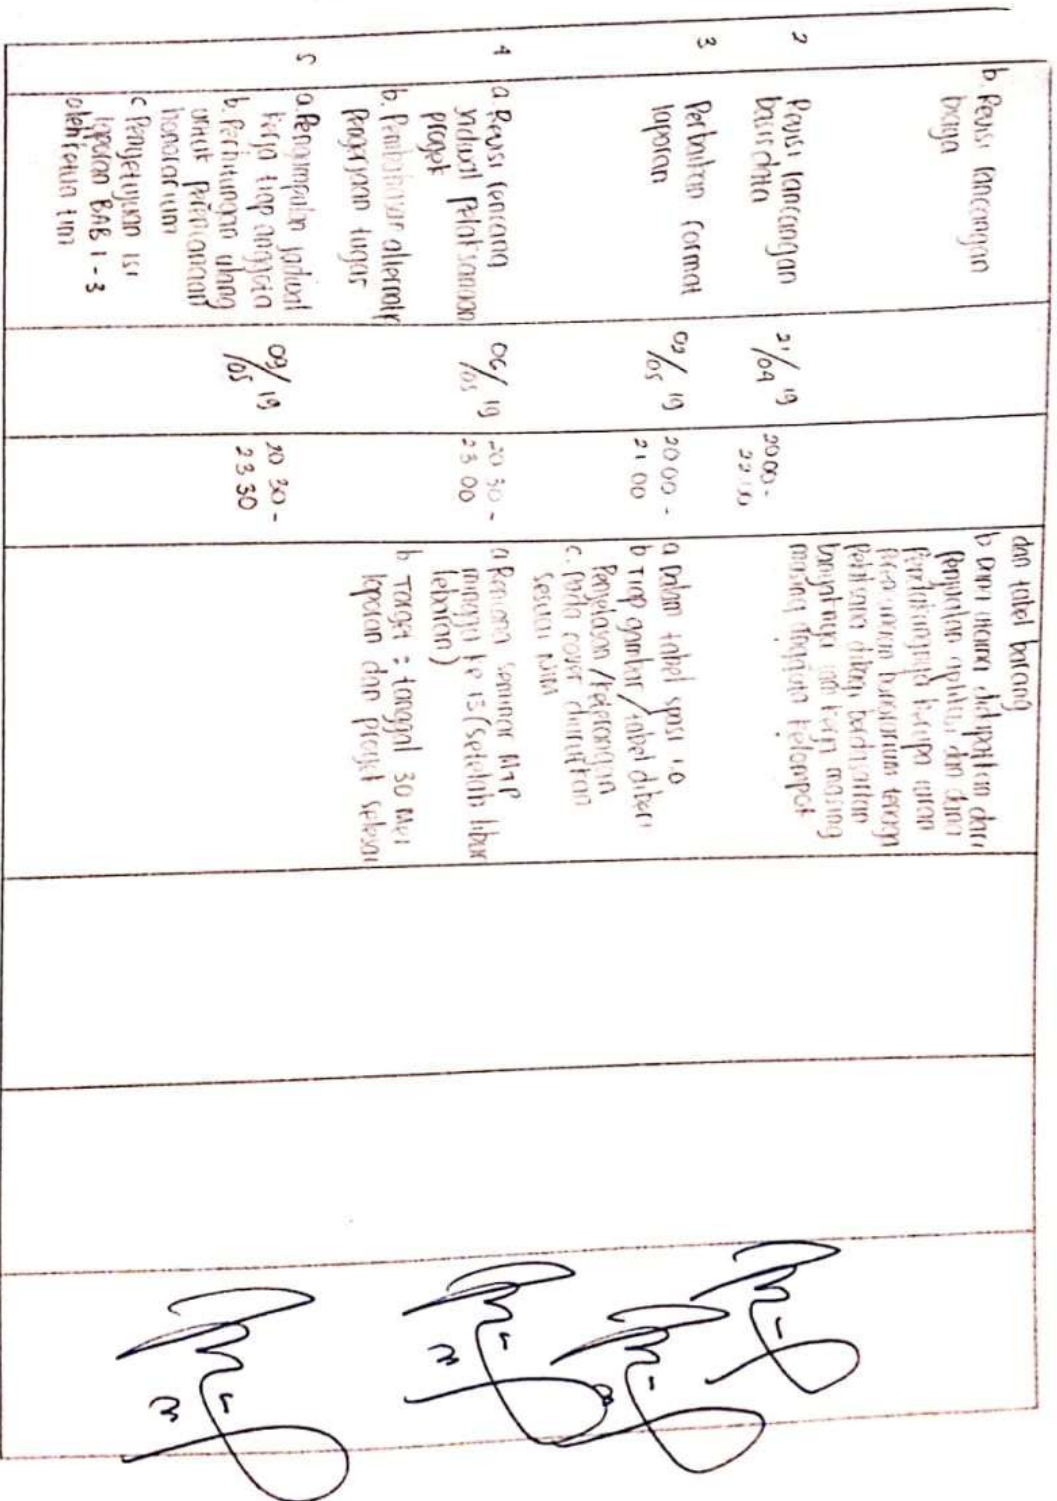 b. Revisi rancangan
biaya
dan tabel barang
b Dana utama didapatkan dari
penjualan aplikasi dan dana
pendukungnya berupa iuran
honorarium tenaga
pelaksana dibagi berdasarkan
banyaknya jam kerja masing
masing anggota kelompok
2
Revisi rancangan
basis data
21/04 19
20 00 -
22 00
3
Perbaikan format
laporan
02/05 19
20 00 -
21 00
a Dalam tabel spasi 1.0
b Tiap gambar/tabel diberi
Penjelasan/keterangan
c. Pada cover diurutkan
sesuai NIM
4
a. Revisi rencana
jadwal pelaksanaan
proyek
b. Pembahasan alternatif
Pengerjaan tugas
06/05 19
20 30 -
23 00
a Rencana seminar MTP
minggu ke 13 (setelah libur
lebaran)
b Target : tanggal 30 Mei
laporan dan proyek selesai
5
a. Pengumpulan jadwal
kerja tiap anggota
b. Perhitungan ulang
untuk perencanaan
honorarium
c Penyetujuan isi
laporan BAB 1 - 3
oleh ketua tim
09/05 19
20 30 -
23 30